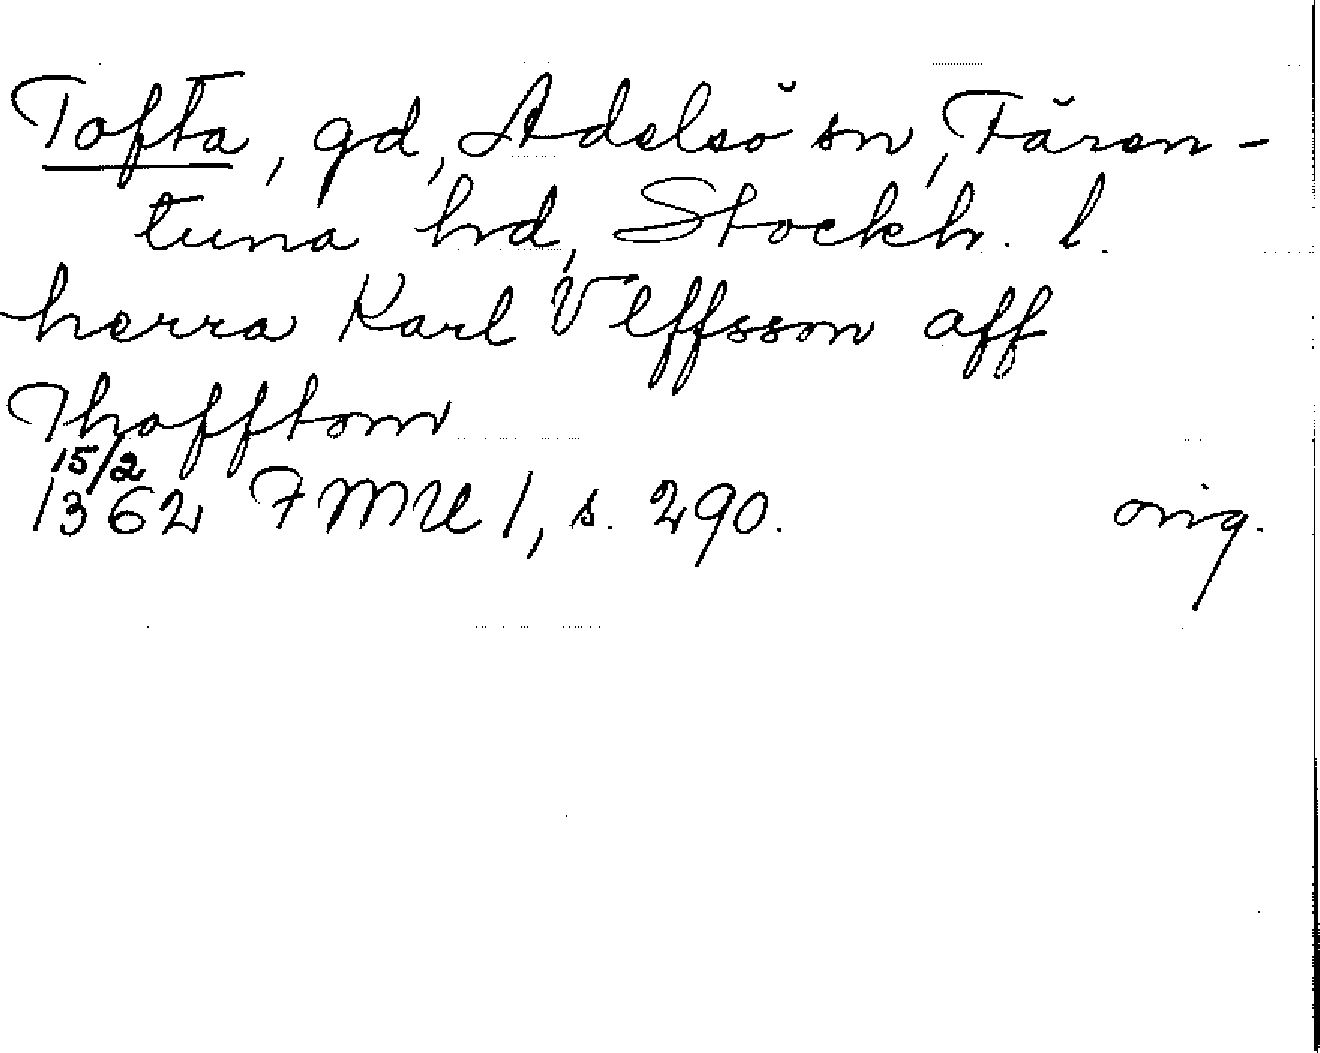 Tofta, gd, Adelsö sn, Fären-
tuna hd, Stockh. l.
herra Karl Vlffsson aff
Thofftom
15/2
1362 FMU 1, s. 290. orig.